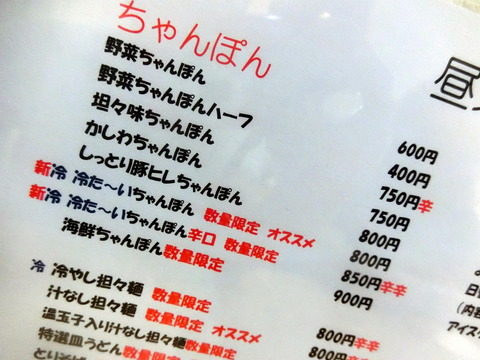 ちゃんぽん
野菜ちゃんぽん 600円
野菜ちゃんぽんハーフ 400円
坦々味ちゃんぽん 750円辛
かしわちゃんぽん 750円
しっとり豚ヒレちゃんぽん 800円
新冷 冷た〜いちゃんぽん 数量限定 オススメ 800円
新冷 冷た〜いちゃんぽん辛口 数量限定 850円辛辛
海鮮ちゃんぽん数量限定 900円
冷 冷やし担々麺 数量限定 800円辛辛
汁なし担々麺 数量限定 オススメ 800円辛
温玉子入り汁なし担々麺数量限定
特選皿うどん数量限定
昼
アイス